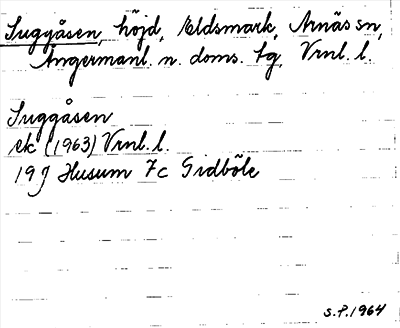 Suggåsen, höjd, Eldsmark, Arnäs sn,
Ångermanl. n. doms. tg, Vrnl. l.
Suggåsen
ek (1963) Vrnl. l.
19 J Husum 7c Gidböle
S.P. 1964